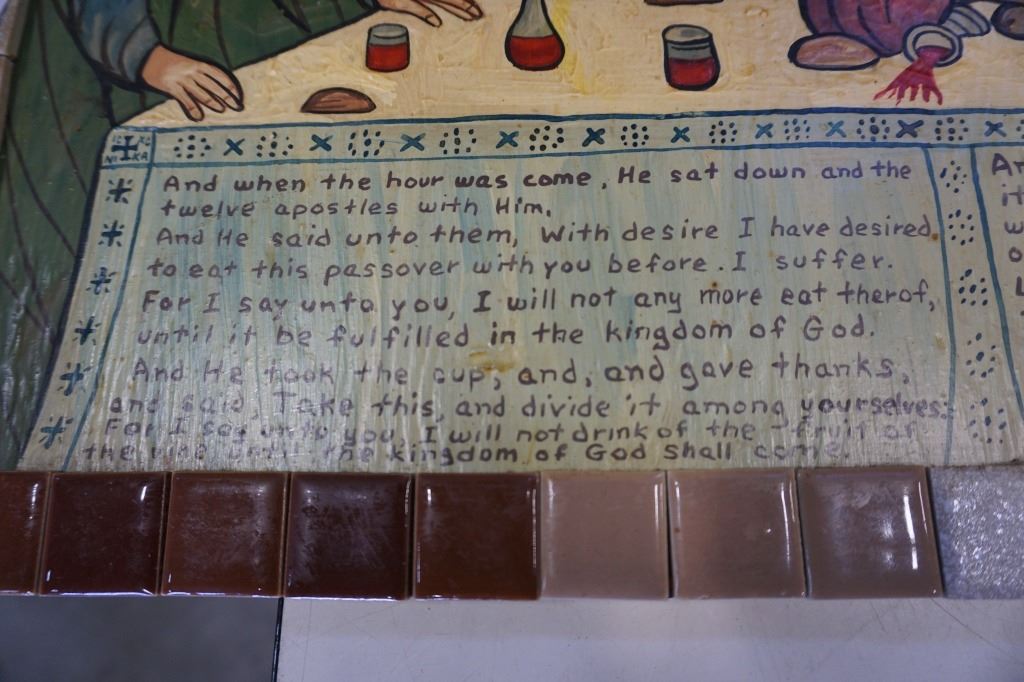 NI KA
And when the hour was come, He sat down and the
twelve apostles with Him.
And He said unto them, With desire I have desired,
to eat this passover with you before. I suffer.
For I say unto you, I will not any more eat therof,
until it be fulfilled in the kingdom of God.
And He took the cup, and, and gave thanks,
and said, Take this, and divide it among yourselves:
For I say unto you, I will not drink of the fruit of
the vine until the kingdom of God shall come.